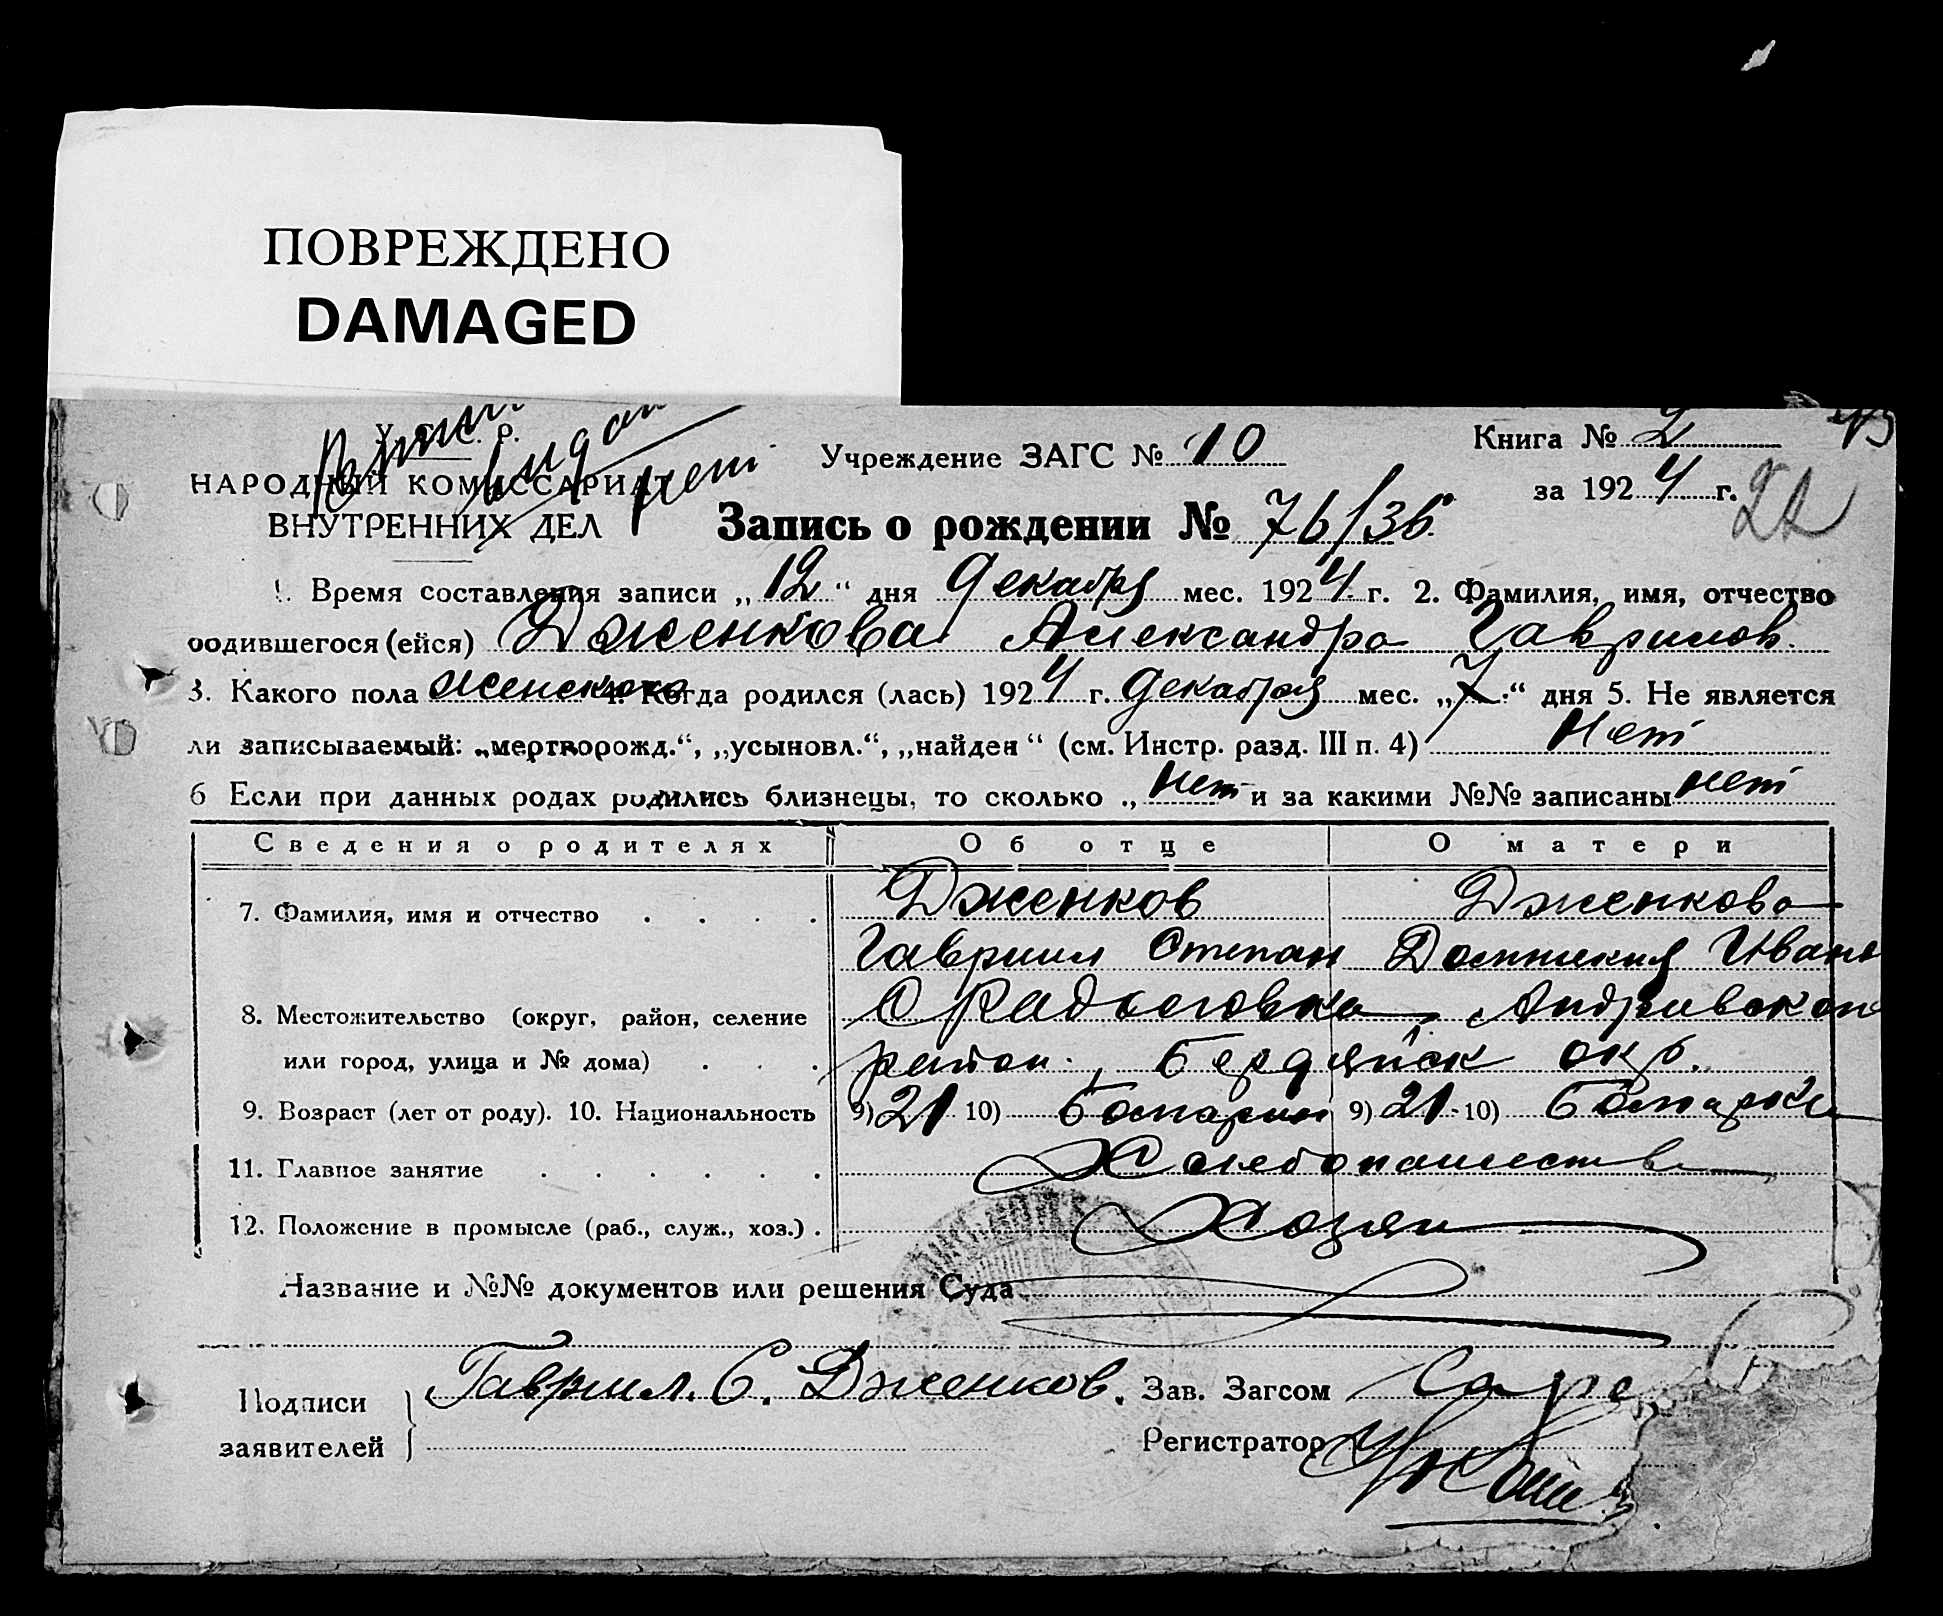 ПОВРЕЖДЕНО
DAMAGED
У. С. С. Р.
НАРОДНЫЙ КОМИССАРИАТ
ВНУТРЕННИХ ДЕЛ
Учреждение ЗАГС № 10
Книга № 2
за 1924 г.
Запись о рождении № 76/36.
1. Время составления записи „12“ дня декабря мес. 1924 г. 2. Фамилия, имя, отчество
родившегося (ейся) Дженкова Александра Гаврилов.
3. Какого пола женского 4. Когда родился (лась) 1924 г. декабря мес. „7“ дня 5. Не является
ли записываемый: „мертворожд.“, „усыновл.“, „найден“ (см. Инстр. разд. III п. 4) Нет
6 Если при данных родах родились близнецы, то сколько „ нет и за какими №№ записаны нет
Сведения о родителях Об отце О матери
7. Фамилия, имя и отчество Дженков Дженкова
Гавриил Степан Домникия Иван
8. Местожительство (округ, район, селение С Радоловка, Андривского
или город, улица и № дома) район., Бердянск окр.
9. Возраст (лет от роду). 10. Национальность 9) 21 10) Болгарин 9) 21 10) Болгарка
11. Главное занятие Хлебопашество
12. Положение в промысле (раб., служ., хоз.) Хозяин
Название и №№ документов или решения Суда
Подписи Гаврил. С. Дженков. Зав. Загсом
заявителей Регистратор